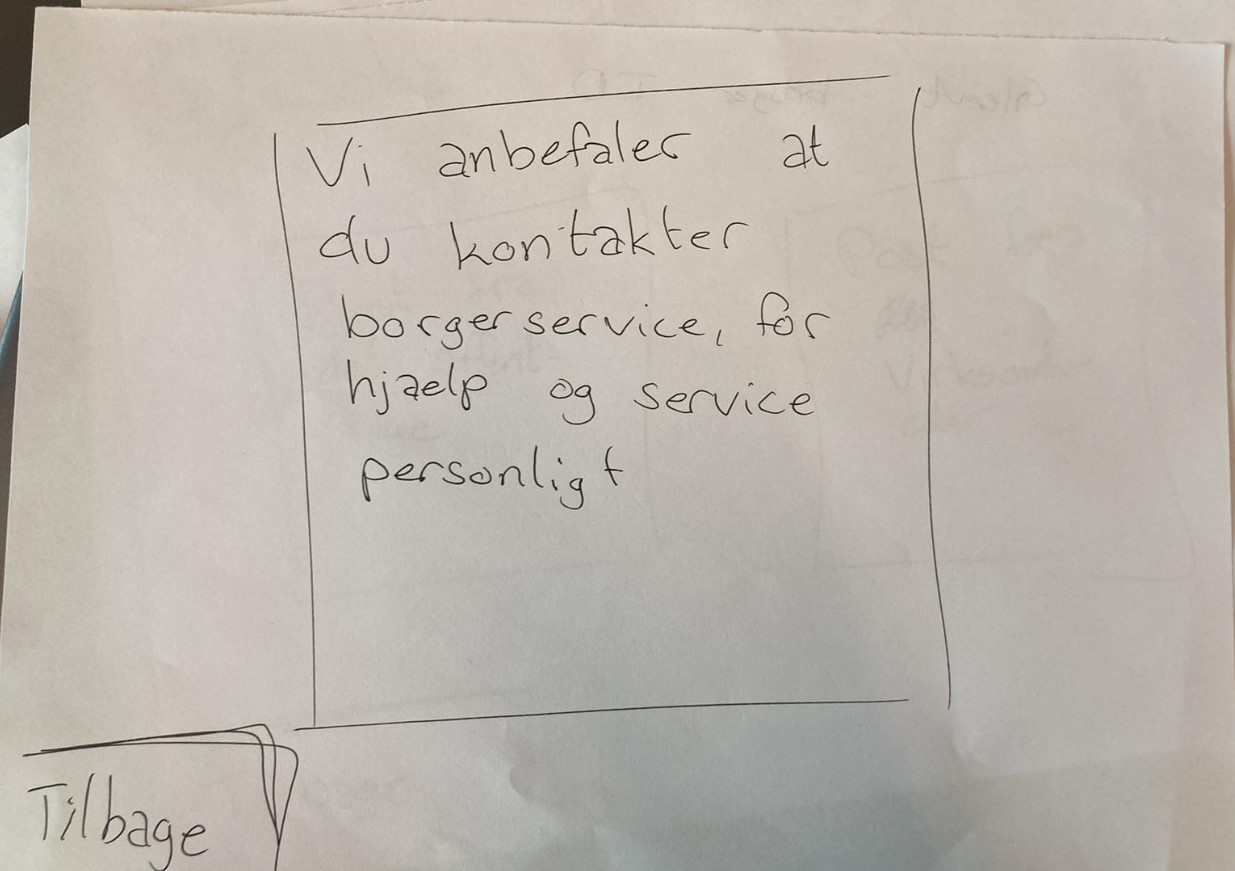 Vi anbefaler at
du kontakter
borgerservice, for
hjælp og service
personligt
Tilbage